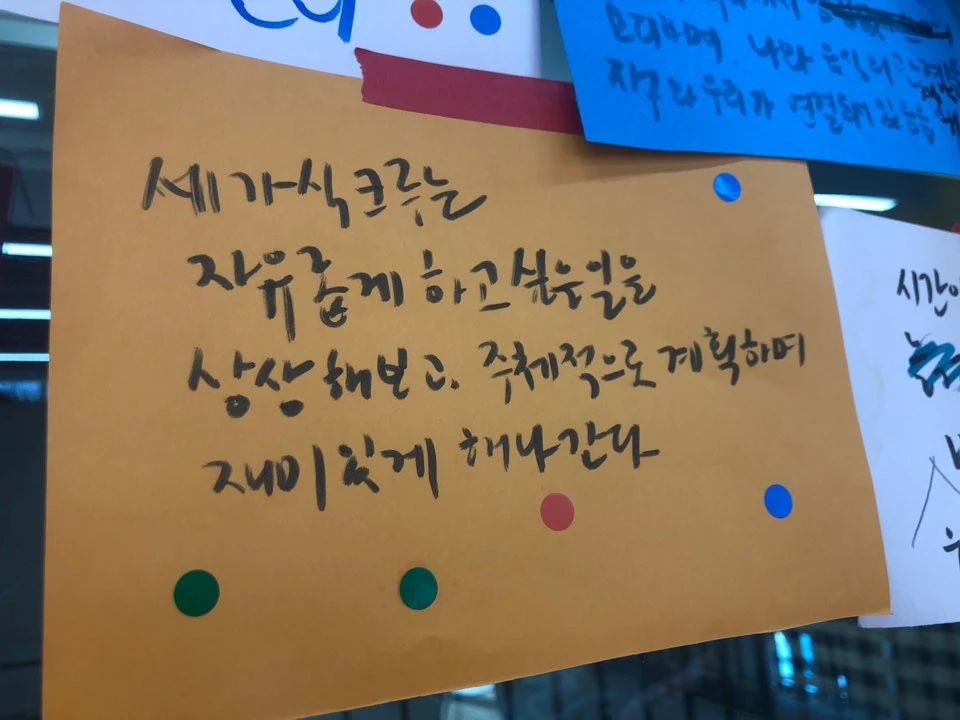 세가식크루는
자유롭게 하고싶은일을
상상해보고, 주체적으로 계획하며
재미있게 해나간다
나와 음식의
지구와 우리가 연결돼 있음을
시간이